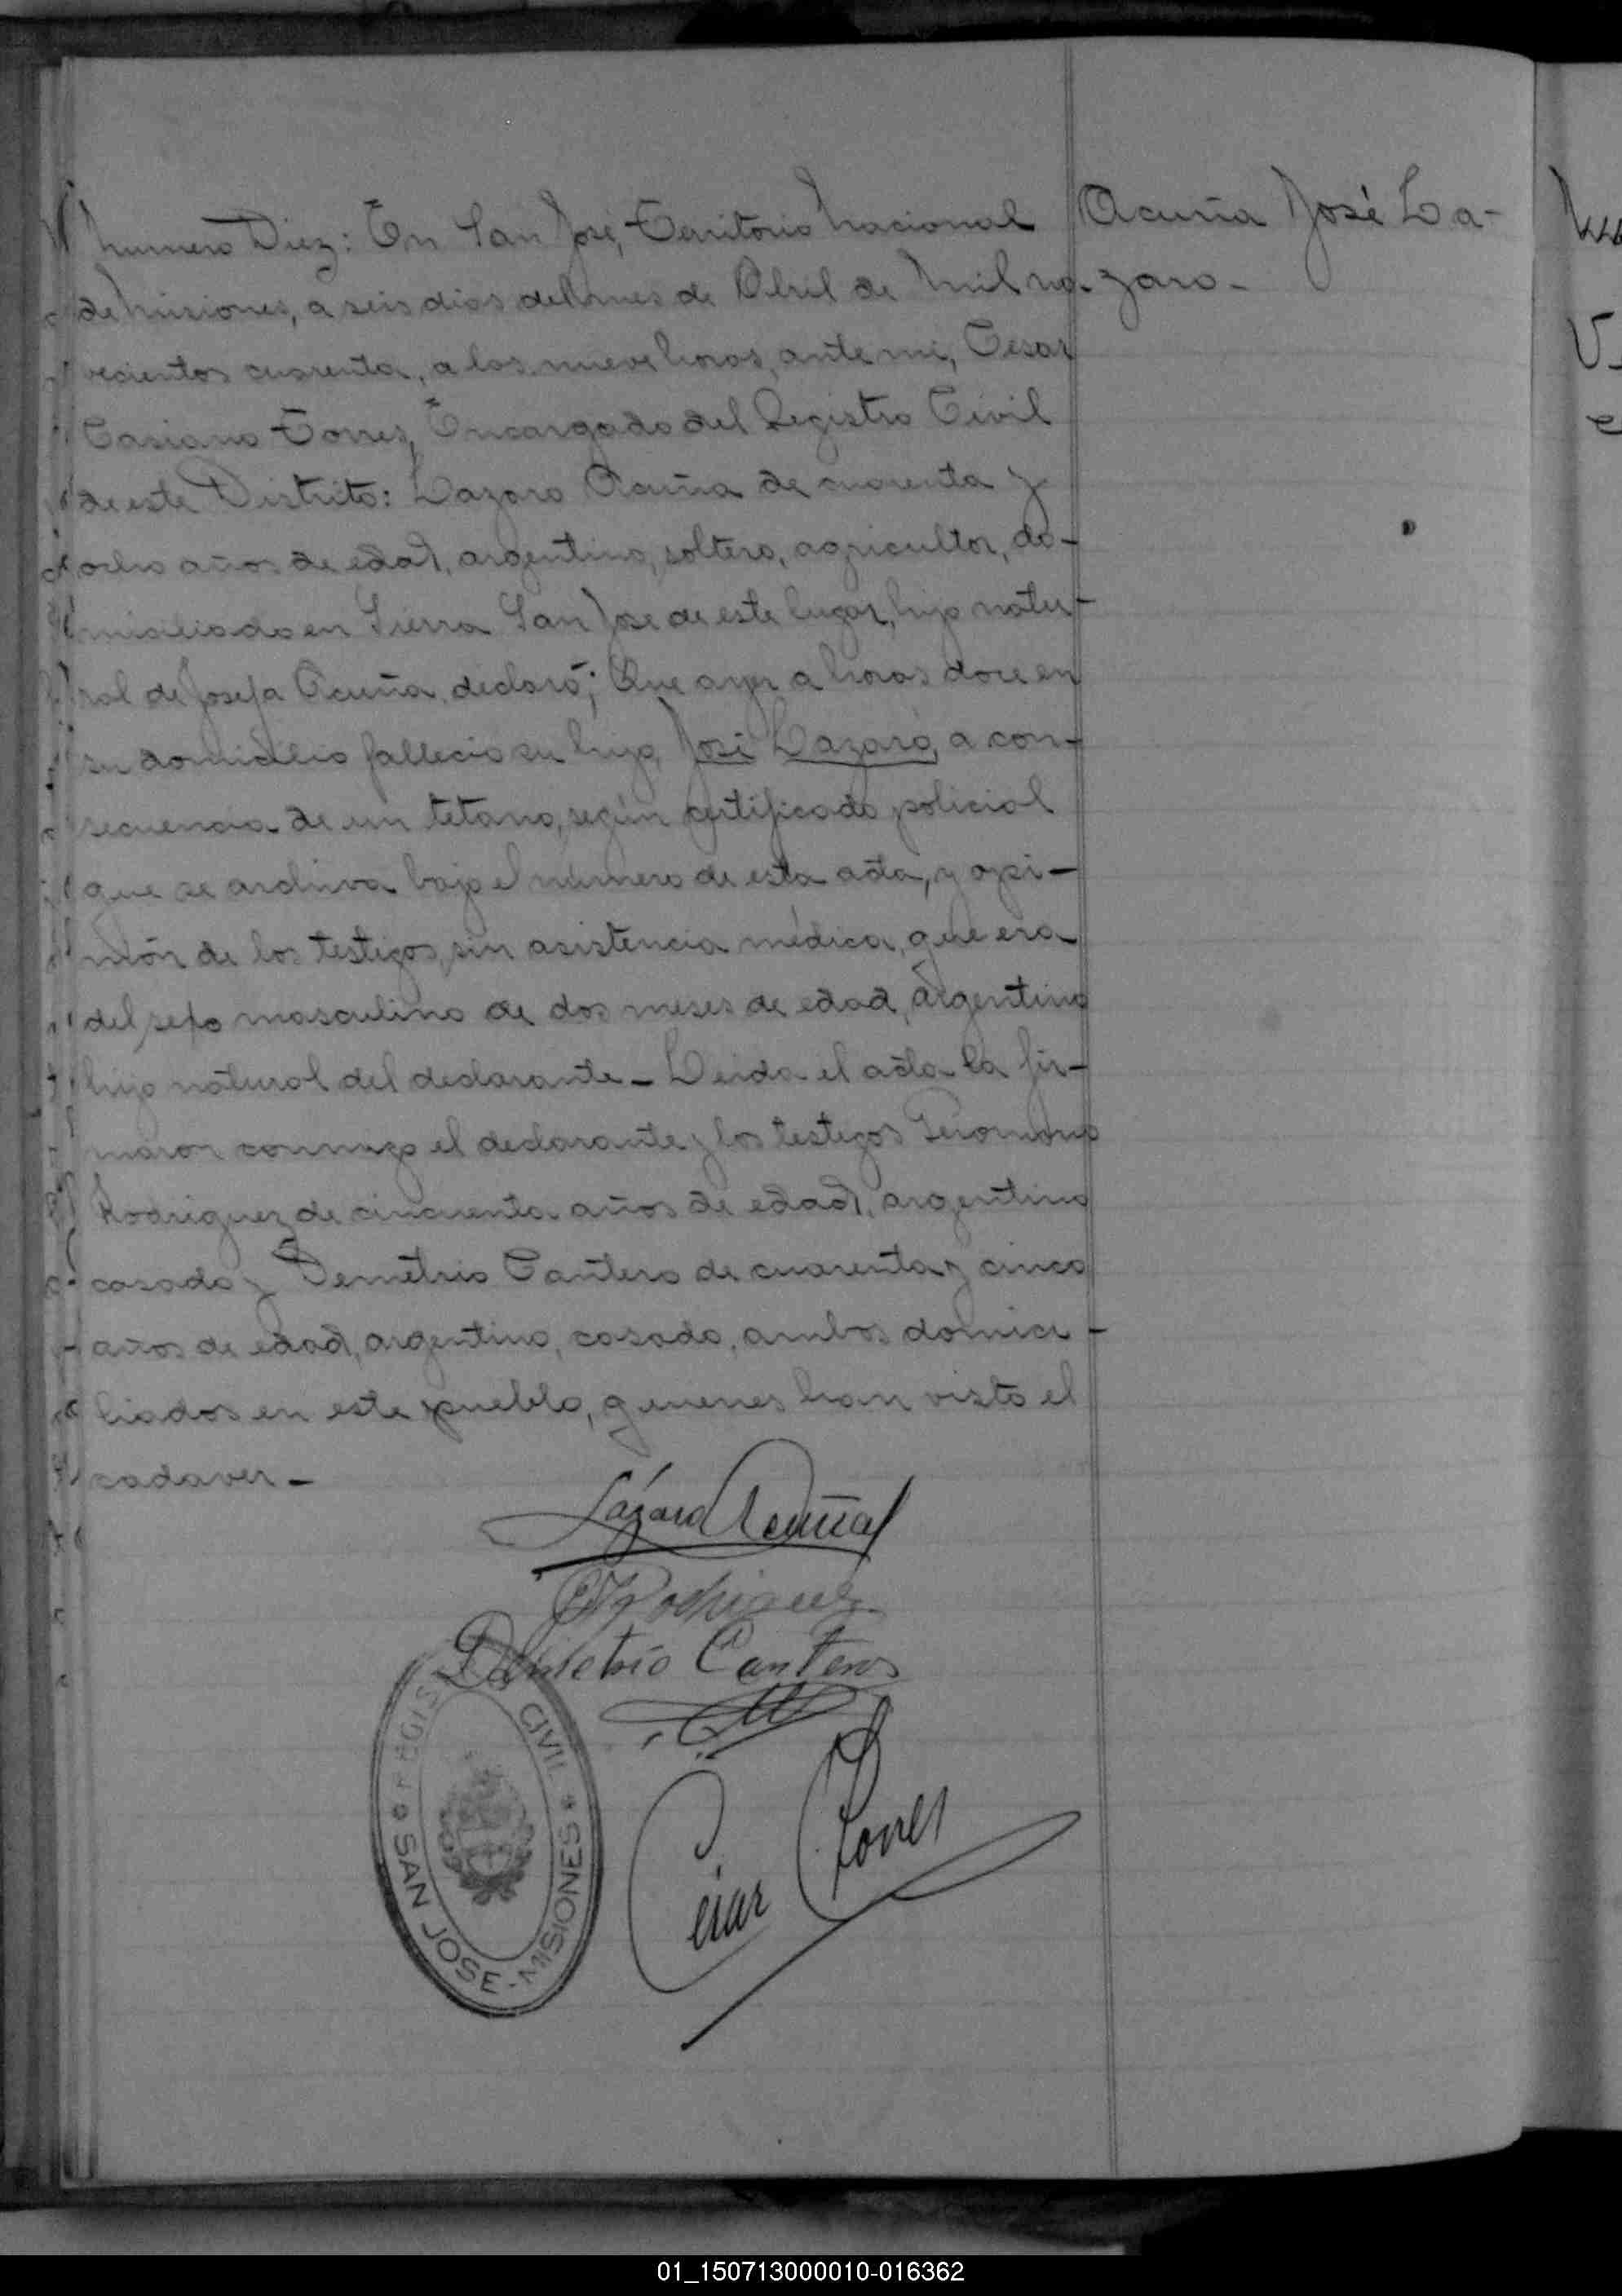 Acuña José La-
zaro-
Numero Diez: En San José, Territorio Nacional
de Misiones, a seis dias del mes de Abril de Mil no-
vecientos cuarenta, a las nueve horas, ante mi, Cesar
Casiano Torres, Encargado del Registro Civil
de este Distrito: Lazaro Acuña de cuarenta y
ocho años de edad, argentino, soltero, agricultor, do-
miciliado en Sierra San Jose de este lugar, hijo natu-
ral de Josefa Acuña, declaró; Que ayer a horas doce en
su domicilio fallecio su hijo, José Lazaro, a con-
secuencia de un tetano, según certificado policial
que se archiva bajo el número de esta acta, y opi-
nión de los testigos, sin asistencia médica, que era
del sexo masculino de dos meses de edad, argentino
hijo natural del declarante- Leida el acta la fir-
maron conmigo el declarante y los testigos Geronimo
Rodriguez de cincuenta años de edad, argentino
casado y Demetrio Cantero de cuarenta y cinco
años de edad, argentino, casado, ambos domici-
liados en este pueblo, quienes han visto el
cadaver-
Lázaro Acuña
G Rodriguez
Demetrio Canteros
Cesar Torres
REGIS CIVIL
SAN JOSE-MISIONES
01_150713000010-016362